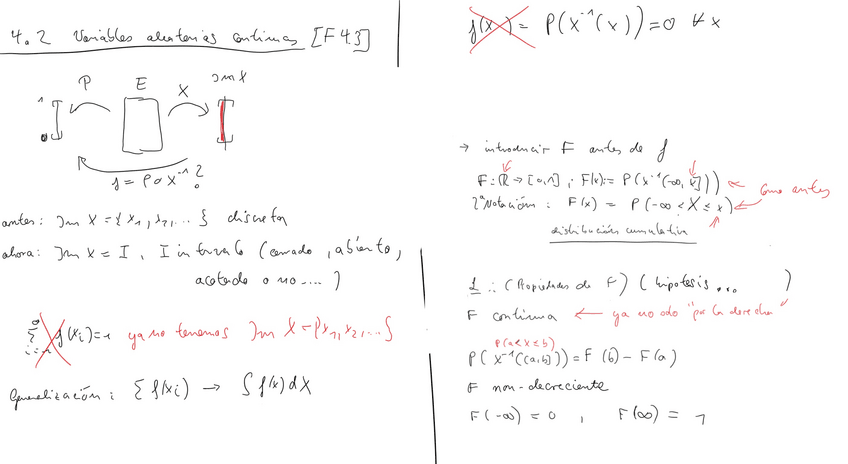 4.2 Variables aleatorias continuas [F 4.3]
P E X Im X
1
0
f = P o X⁻¹ ?
antes: Im X = {x₁, x₂, ...} discreta
ahora: Im X = I, I intervalo (cerrado, abierto,
acotado o no ...)
Σ f(xᵢ) = 1 ya no tenemos Im X = {x₁, x₂, ...}
Generalización: Σ f(xᵢ) → ∫ f(x) dx
f(x) = P(X⁻¹(x)) = 0 ∀ x
→ introducir F antes de f
F: ℝ → [0,1] ; F(x) := P(X⁻¹(-∞, x])) ← como antes
2ª Notación: F(x) = P(-∞ < X ≤ x)
distribución cumulativa
(Propiedades de F) (hipotesis ... )
F continua ← ya no solo "por la derecha"
P(a < X ≤ b)
P(X⁻¹((a,b])) = F(b) - F(a)
F non-decreciente
F(-∞) = 0 , F(∞) = 1